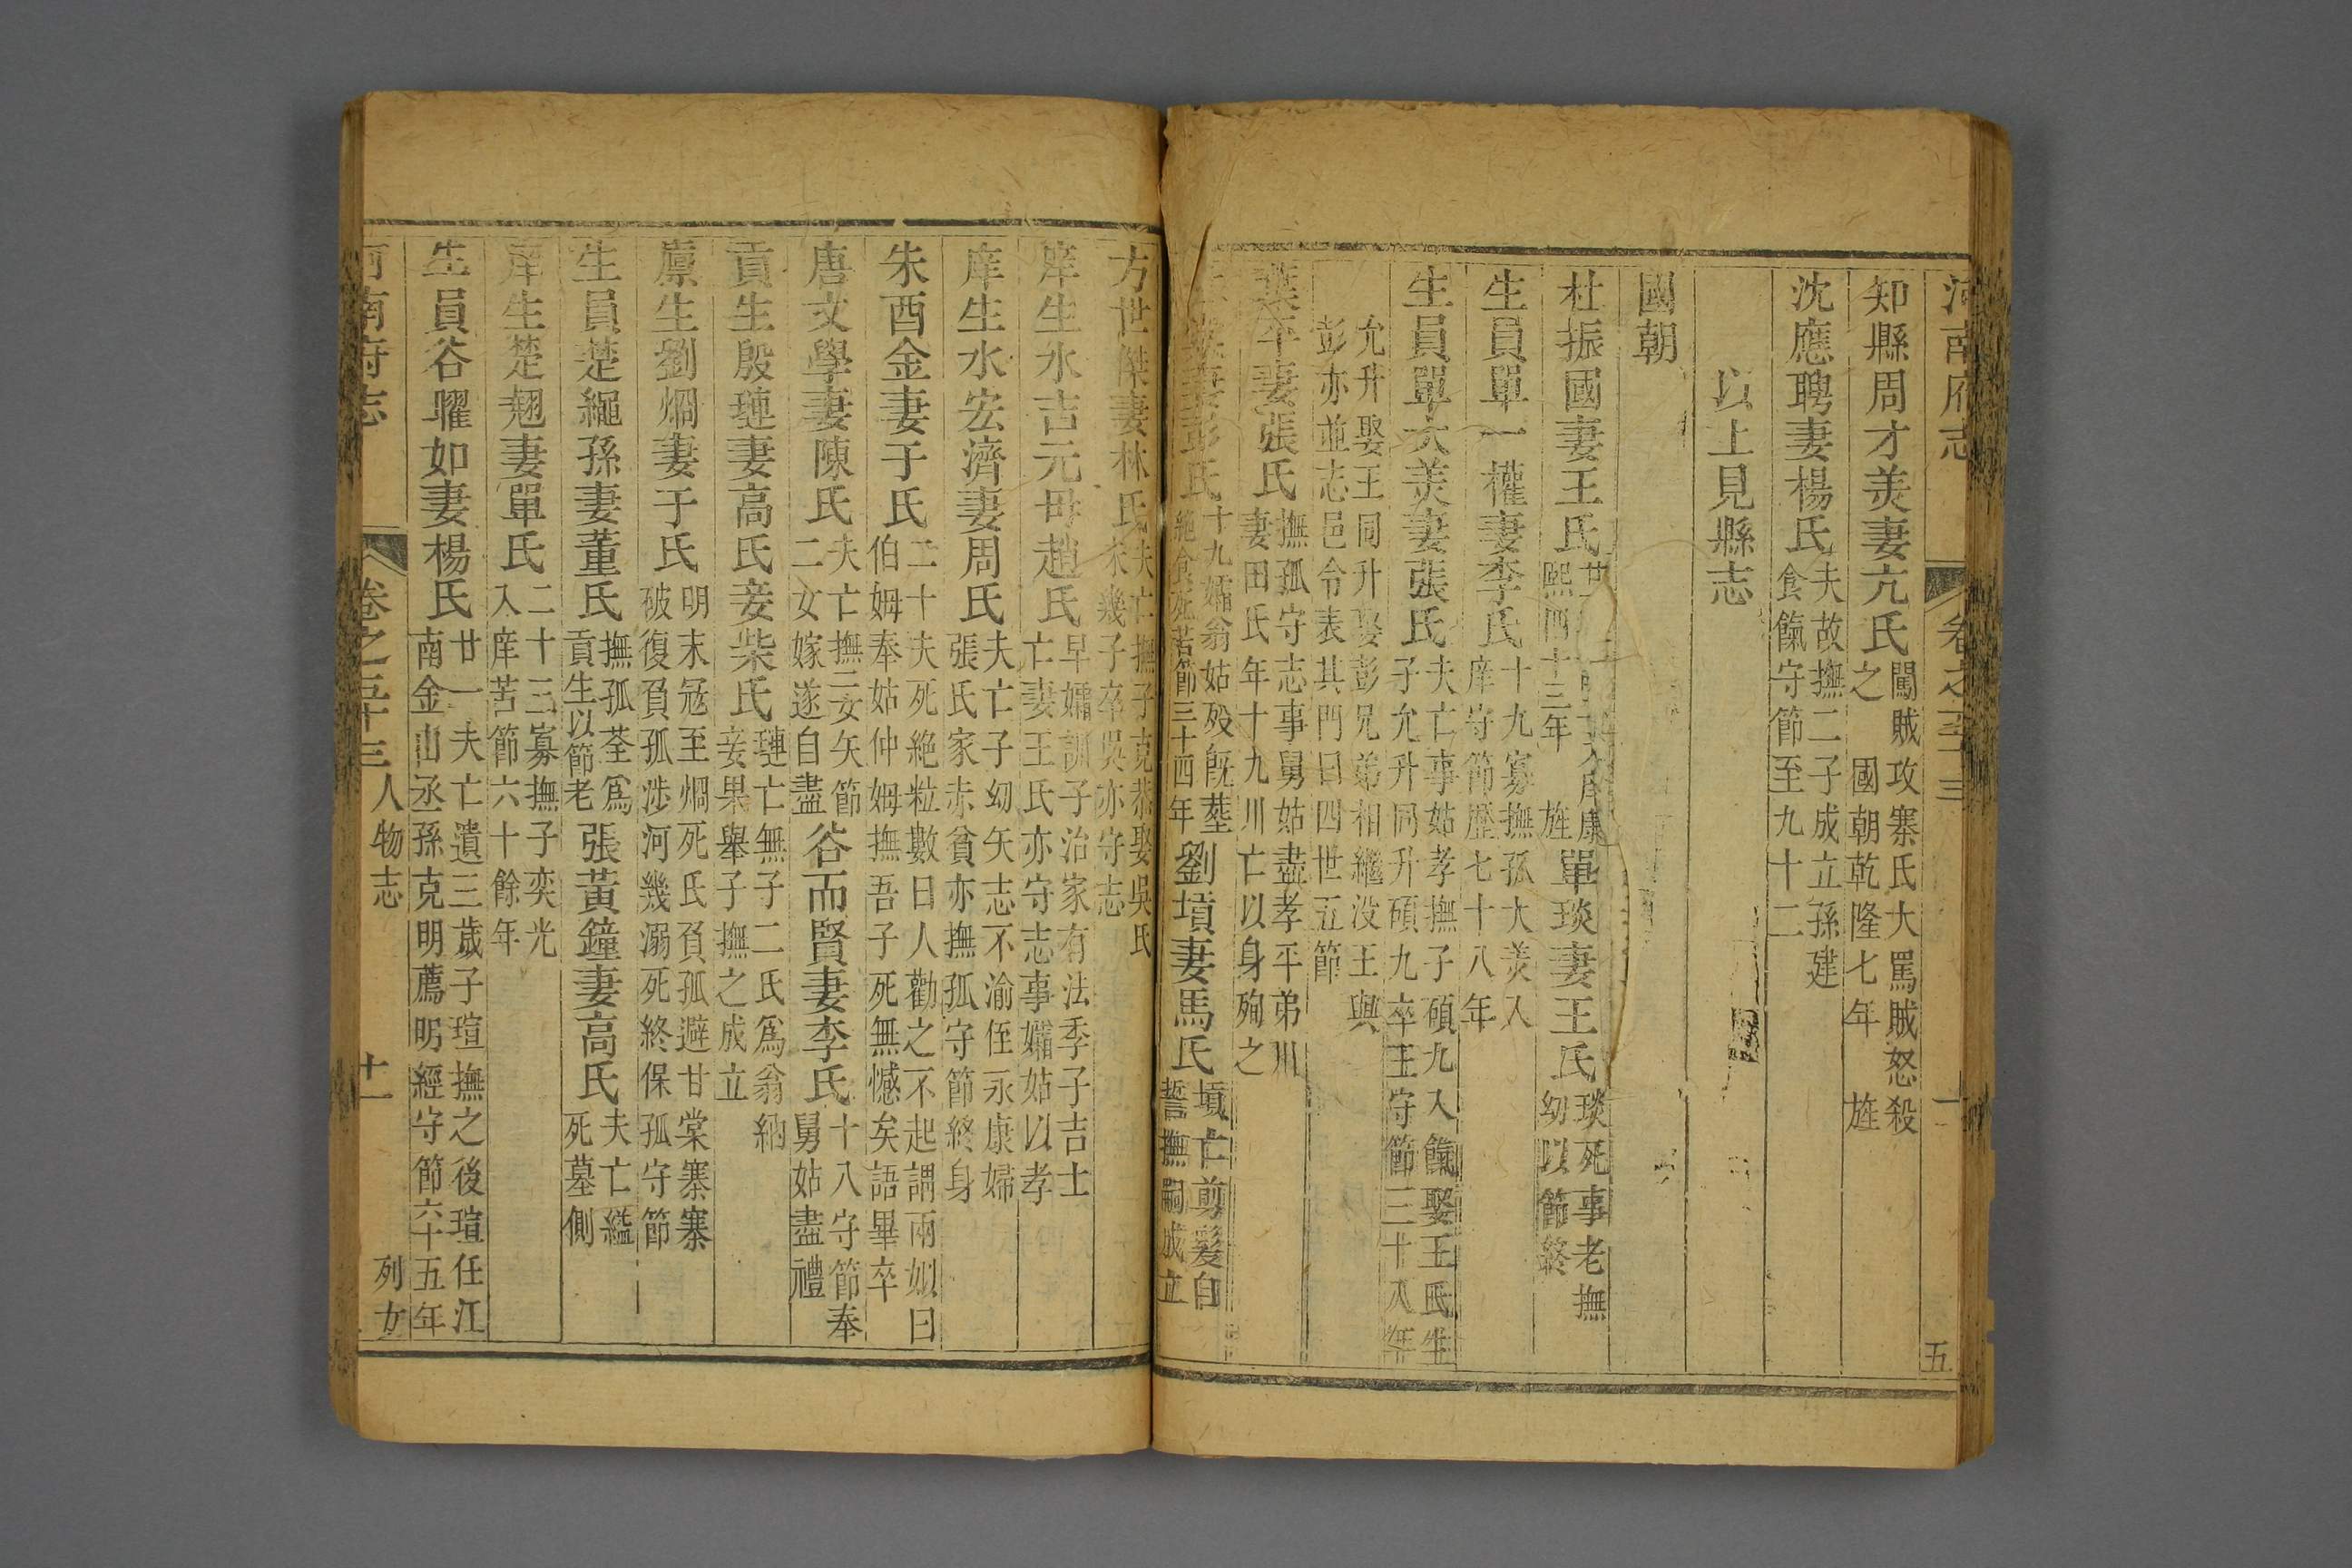 河南府志 卷之五十三 五
知縣周才美妻亢氏闖賊攻寨氏大罵賊怒殺之 國朝乾隆七年 旌
沈應聘妻楊氏夫故撫二子成立孫建食餼守節至九十二
以上見縣志
國朝
杜振國妻王氏廿 入庠康熙四十三年 旌單琰妻王氏琰死事老撫幼以節終
生員單一權妻李氏十九寡撫孤大美入庠守節歷七十八年
生員單大美妻張氏夫亡事姑孝撫子碩九入餼娶王氏生子允升同升碩九卒王守節三十八年
允升娶王同升娶彭兄弟相繼沒王與彭亦並志邑令表其門曰四世五節
葉平妻張氏撫孤守志事舅姑盡孝平弟川妻田氏年十九川亡以身殉之
妻彭氏十九孀翁姑歿旣塟絕食死苦節三十四年劉墳妻馬氏墳亡剪髮自誓撫嗣成立
方世傑妻林氏夫亡撫子克恭娶吳氏未幾子卒吳亦守志
庠生水吉元母趙氏早孀訓子治家有法季子吉士亡妻王氏亦守志事孀姑以孝
庠生水宏濟妻周氏夫亡子幼矢志不渝侄永康婦張氏家赤貧亦撫孤守節終身
朱酉金妻于氏二十夫死絕粒數日人勸之不起謂兩姒曰伯姆奉姑仲姆撫吾子死無憾矣語畢卒
唐文學妻陳氏夫亡撫二女矢節二女嫁遂自盡谷而賢妻李氏十八守節奉舅姑盡禮
貢生殷璉妻高氏妾柴氏璉亡無子二氏爲翁納妾果舉子撫之成立
廪生劉烱妻于氏明末冦至烱死氏負孤避甘棠寨寨破復負孤涉河幾溺死終保孤守節
生員楚繩孫妻董氏撫孤荃爲貢生以節老張黃鐘妻高氏夫亡縊死墓側
庠生楚翹妻單氏二十三寡撫子奕光入庠苦節六十餘年
生員谷曜如妻楊氏廿一夫亡遺三歲子瑄撫之後瑄任江南金山丞孫克明薦明經守節六十五年
河南府志 卷之五十三人物志 十一 列女